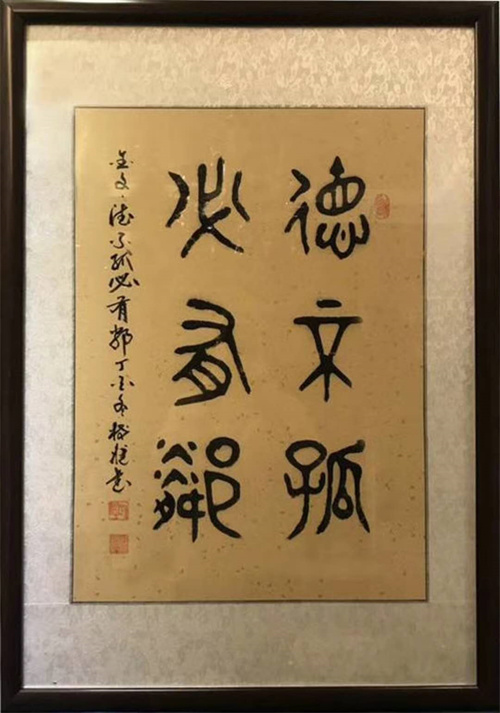 德不孤
必有鄰
金文德不孤必有鄰丁酉冬书